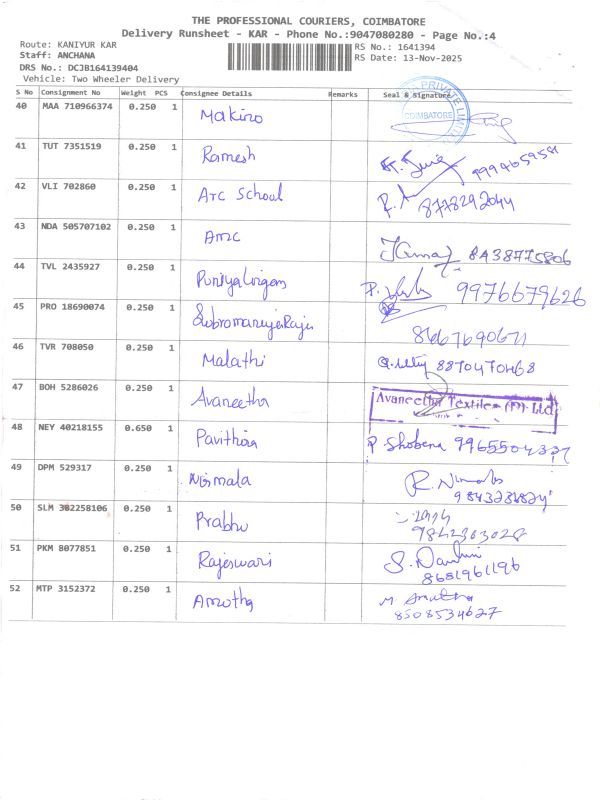 THE PROFESSIONAL COURIERS, COIMBATORE
Delivery Runsheet - KAR - Phone No.:9047080280 - Page No.:4
Route: KANIYUR KAR
RS No.: 1641394
Staff: ANCHANA
RS Date: 13-Nov-2025
DRS No.: DCJB164139404
Vehicle: Two Wheeler Delivery
S No Consignment No Weight PCS Consignee Details Remarks Seal & Signature
PRIVATE LIMITED COIMBATORE
40 MAA 710966374 0.250 1 Makino
41 TUT 7351519 0.250 1 Ramesh
42 VLI 702860 0.250 1 Arc School 8778292044
43 NDA 505707102 0.250 1 Amc 8438775806
44 TVL 2435927 0.250 1 Puniyalingam 9976679626
45 PRO 18690074 0.250 1 SubramaniyaRaju 8667690671
46 TVR 708050 0.250 1 Malathi 8870470468
47 BOH 5286026 0.250 1 Avaneetha Avaneetha Textiles (P) Ltd
48 NEY 40218155 0.650 1 Pavithira P. Shobana 9965504337
49 DPM 529317 0.250 1 Nirmala
50 SLM 382258106 0.250 1 Prabhu 9842303028
51 PKM 8077851 0.250 1 Rajeswari 8681961196
52 MTP 3152372 0.250 1 Amutha 8508534627